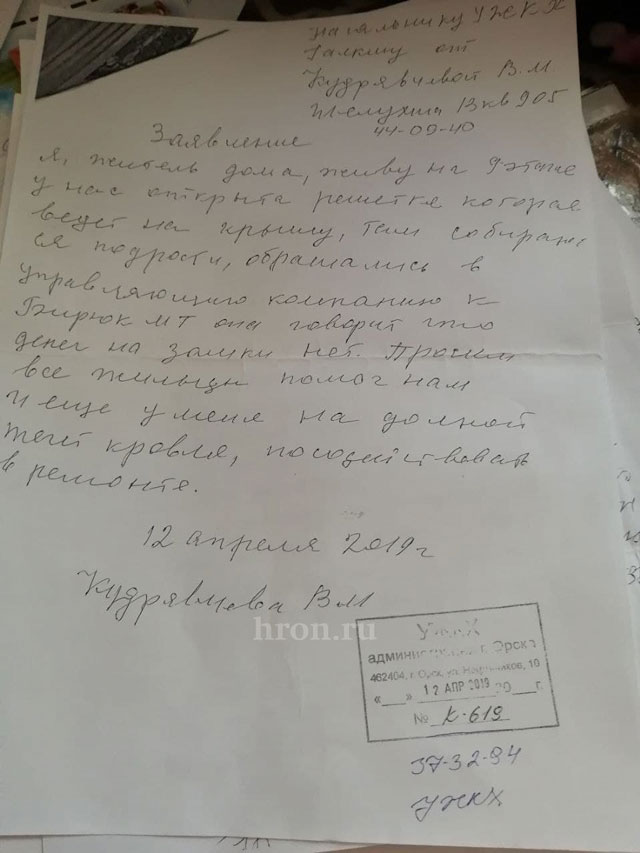 начальнику УЖКХ
Галкину от
Кудрявчевой В.М
В кв 905
44-09-40
Заявление
Я, житель дома, живу на 9 этаже
у нас открыта решетка которая
ведет на крышу, там собирают
ся подрости, обращались в
управляющию компанию к
Бирюк МТ она говорит что
денег на замки нет. Просим
все жильцы помоч нам
и еще у меня на
течет кровля, посодействовать
в ремонте.
12 апреля 2019г
Кудрявчева ВМ
hron.ru
УЖКХ
администрации г. Орска
462404, г. Орск, ул. Нефтяников, 10
«___» 12 АПР 2019 20___г.
№ К-619
37-32-94
УЖКХ